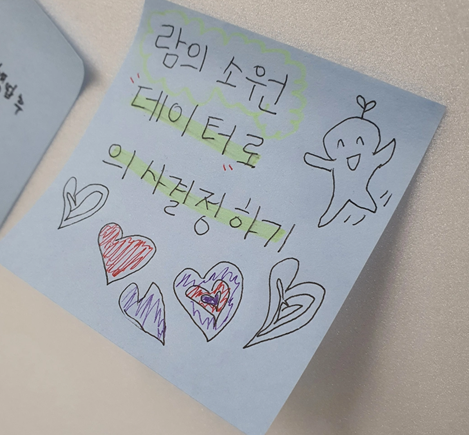 람의 소원
"데이터로"
의사결정하기